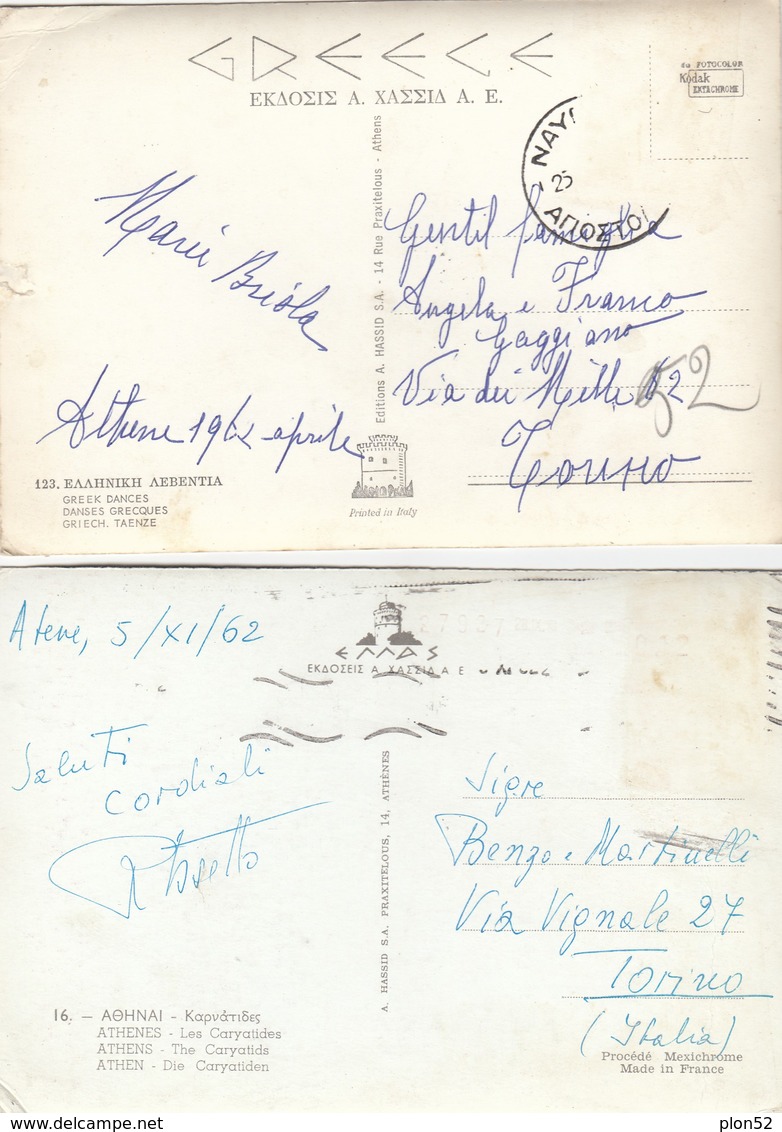 GREECE
ΕΚΔΟΣΙΣ Α. ΧΑΣΣΙΔ Α. Ε.
da FOTOCOLOR
Kodak
EKTACHROME
ΝΑΥ
25
ΑΠΟΣΤΟ
Editions A. HASSID S.A. - 14 Rue Praxitelous - Athens
Maria Briola
Athene 1962 aprile
Gentil famiglia
Angela e Franco
Gaggiano
Via dei Mille 52
52
Torino
123. ΕΛΛΗΝΙΚΗ ΛΕΒΕΝΤΙΑ
GREEK DANCES
DANSES GRECQUES
GRIECH. TAENZE
Printed in Italy
Atene, 5/XI/62
ΕΛΛΑΣ
ΕΚΔΟΣΕΙΣ Α. ΧΑΣΣΙΔ Α Ε
Saluti
cordiali
A. HASSID S.A. PRAXITELOUS, 14, ATHÈNES
Sigre
Benzo e Martinelli
Via Vignale 27
Torino
(Italia)
16. — ΑΘΗΝΑΙ - Καρυάτιδες
ATHENES - Les Caryatides
ATHENS - The Caryatids
ATHEN - Die Caryatiden
Procédé Mexichrome
Made in France
plon52